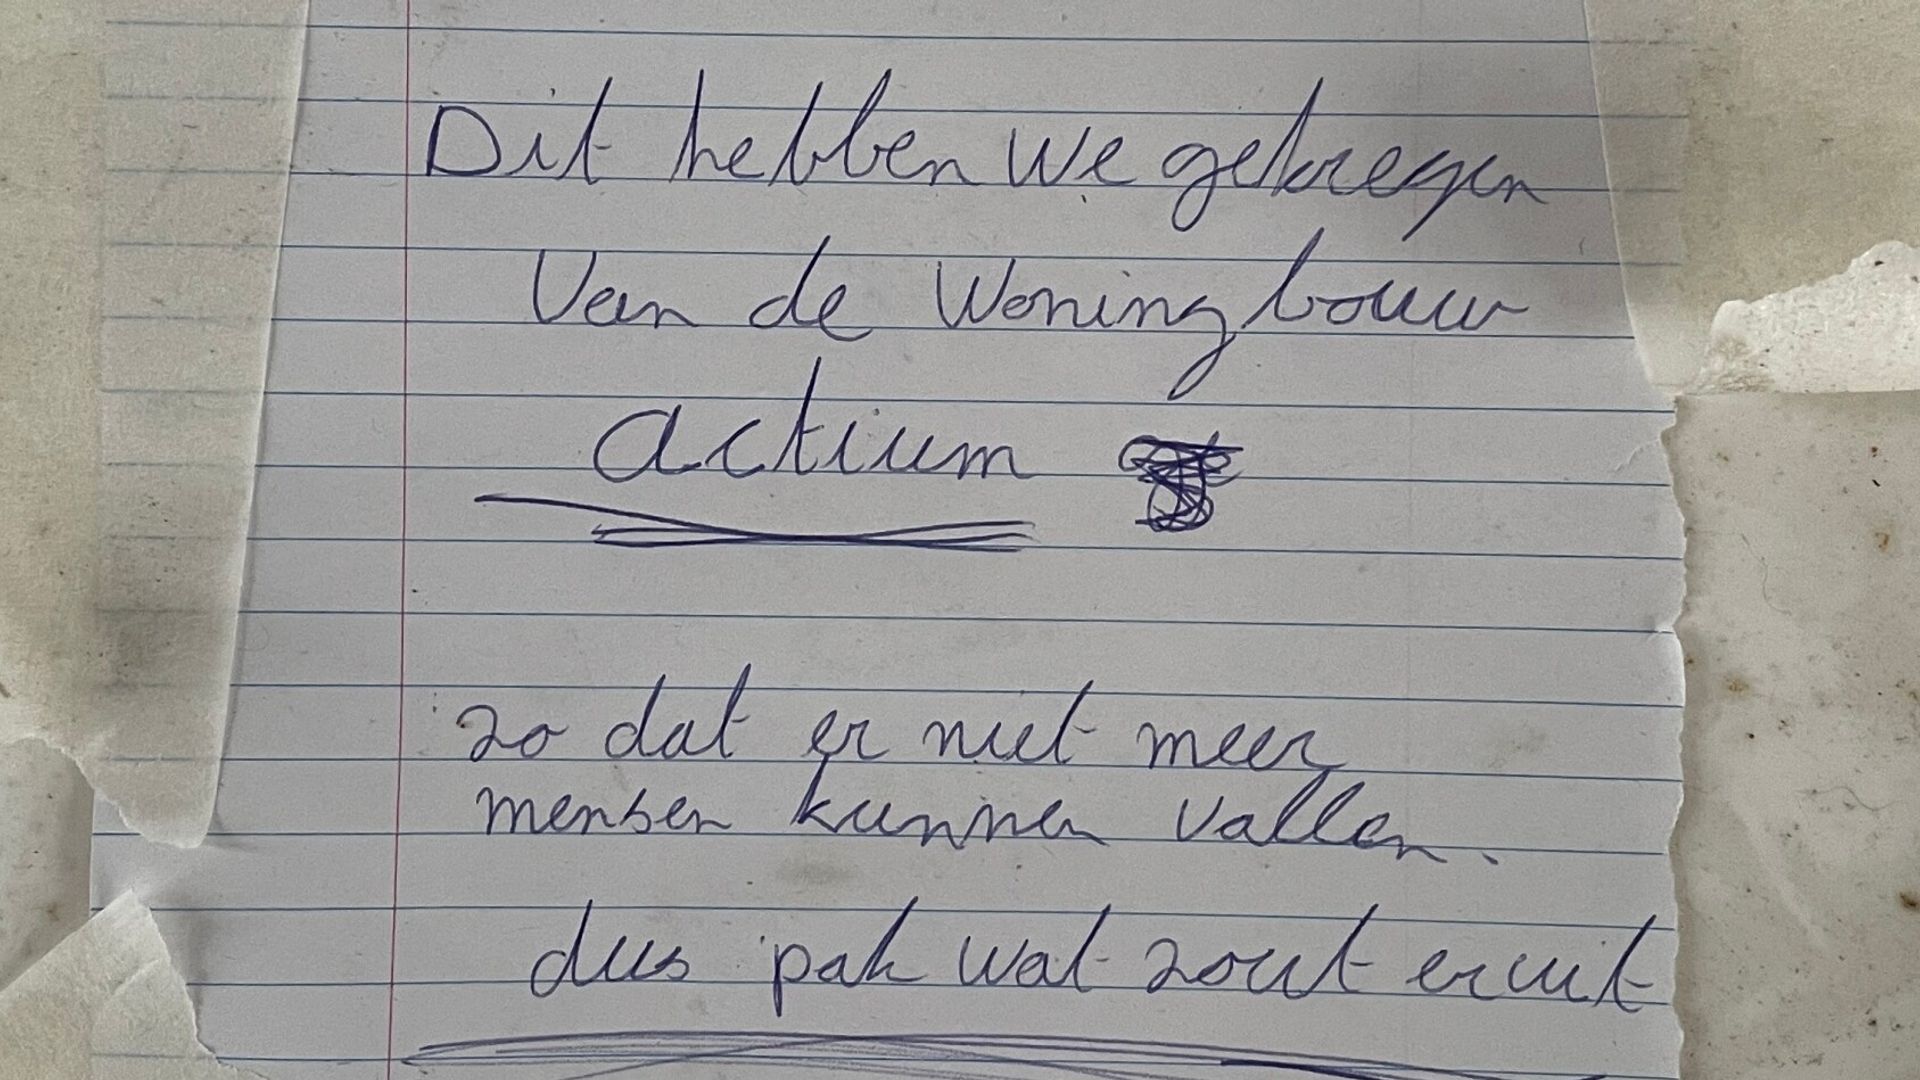 Dit hebben we gekregen
Van de Woningbouw
actium
zo dat er niet meer
mensen kunnen vallen.
dus pak wat zout eruit